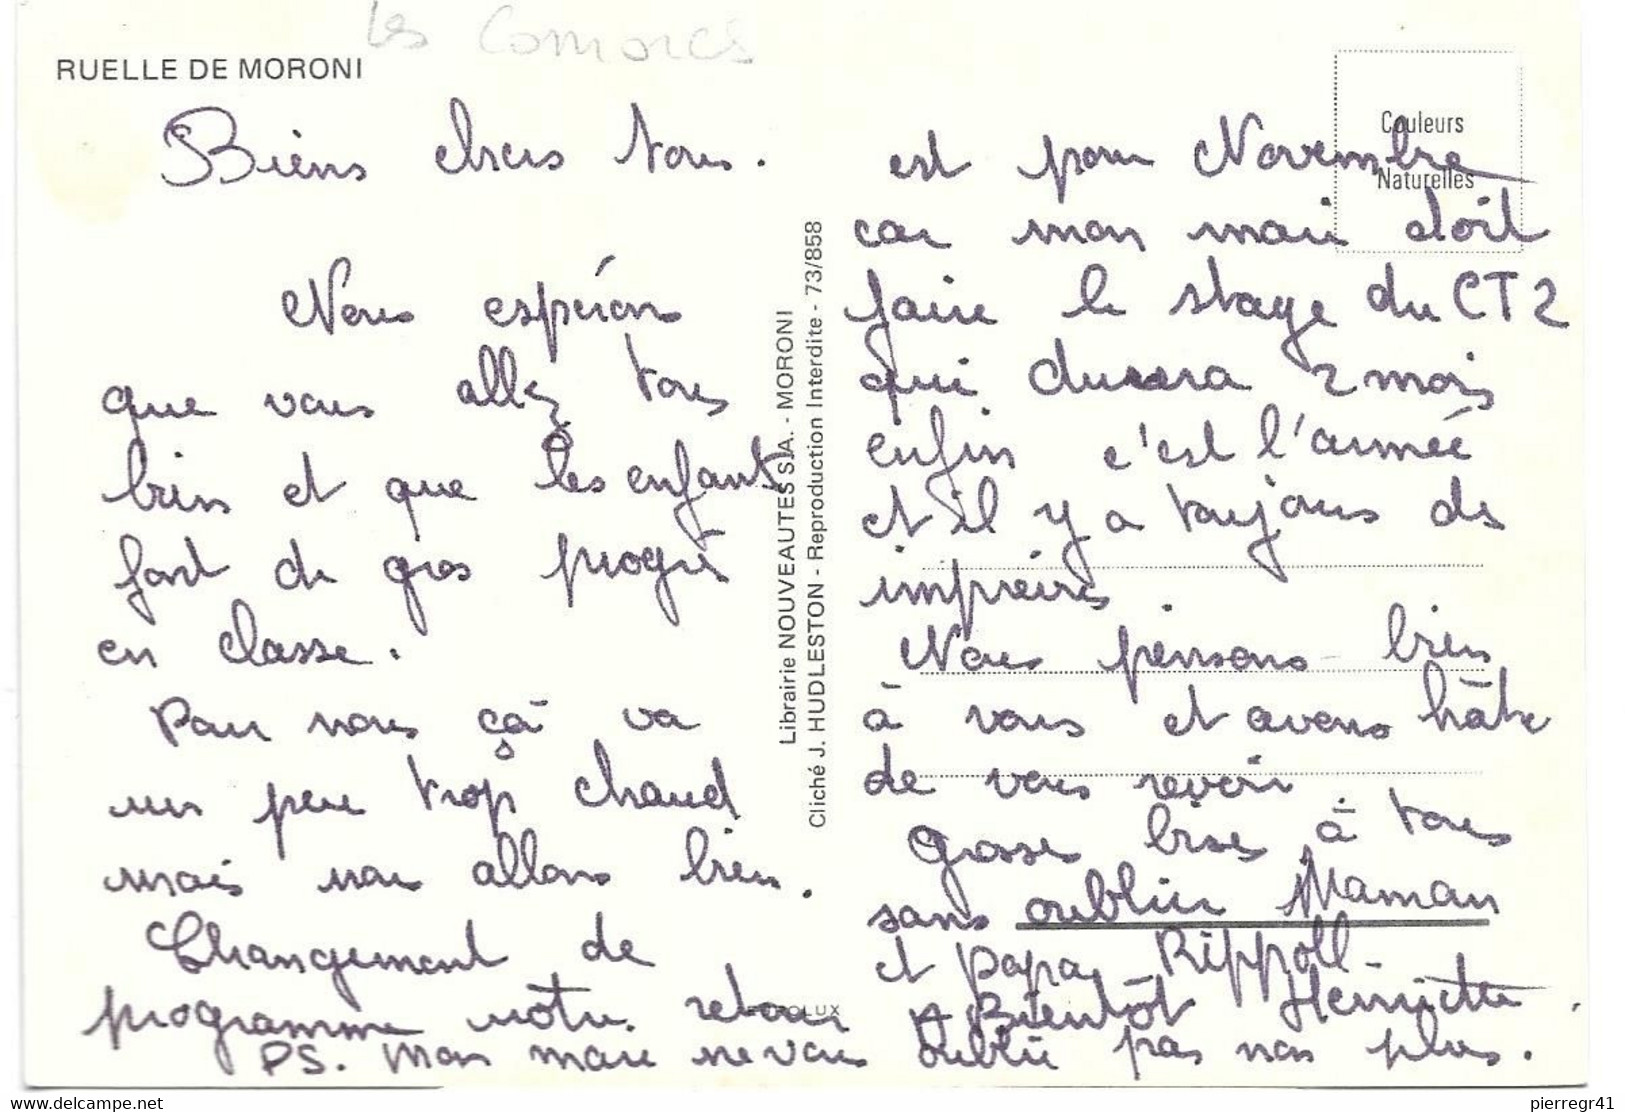 les Comores
RUELLE DE MORONI
Biens chers tous.
Nous espérons
que vous allez tous
bien et que les enfants
font de gros progrès
en classe.
Pour nous çà va
un peu trop chaud
mais nous allons bien.
Changement de
programme notre retour
est pour Novembre
car mon mari doit
faire le stage du CT2
qui durera 2 mois
enfin c'est l'armée
et il y a toujours des
imprévis
Nous pensons bien
à vous et avons hâte
de vous revoir.
Grosses bises à tous
sans oublier Maman
et papa Rippoll
A Bientôt Henriette.
PS. Mon mari ne vous oublie pas non plus.
Couleurs
Naturelles
Librairie NOUVEAUTES S.A. - MORONI
Cliché J. HUDLESTON - Reproduction Interdite - 73/858
https://www.delcampe.net
pierregr41